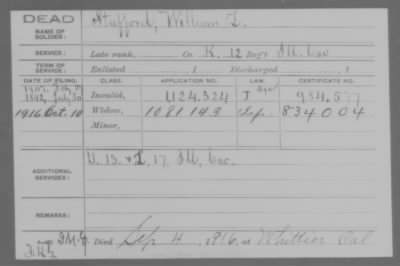 DEAD
NAME OF SOLDIER: Stafford, William L.
SERVICE: Late rank, Co. K, 12 Reg't Ill. Cav
TERM OF SERVICE: Enlisted , 1 Discharged , 1
DATE OF FILING. CLASS. APPLICATION NO. LAW. CERTIFICATE NO.
Invalid, 1,124,324 J 984,577
1916 Oct. 10 Widow, 1081143 834004
Minor,
ADDITIONAL SERVICES: 17, Ill, Cav.
REMARKS:
Died Sep 4, 1916, at Whittier Cal